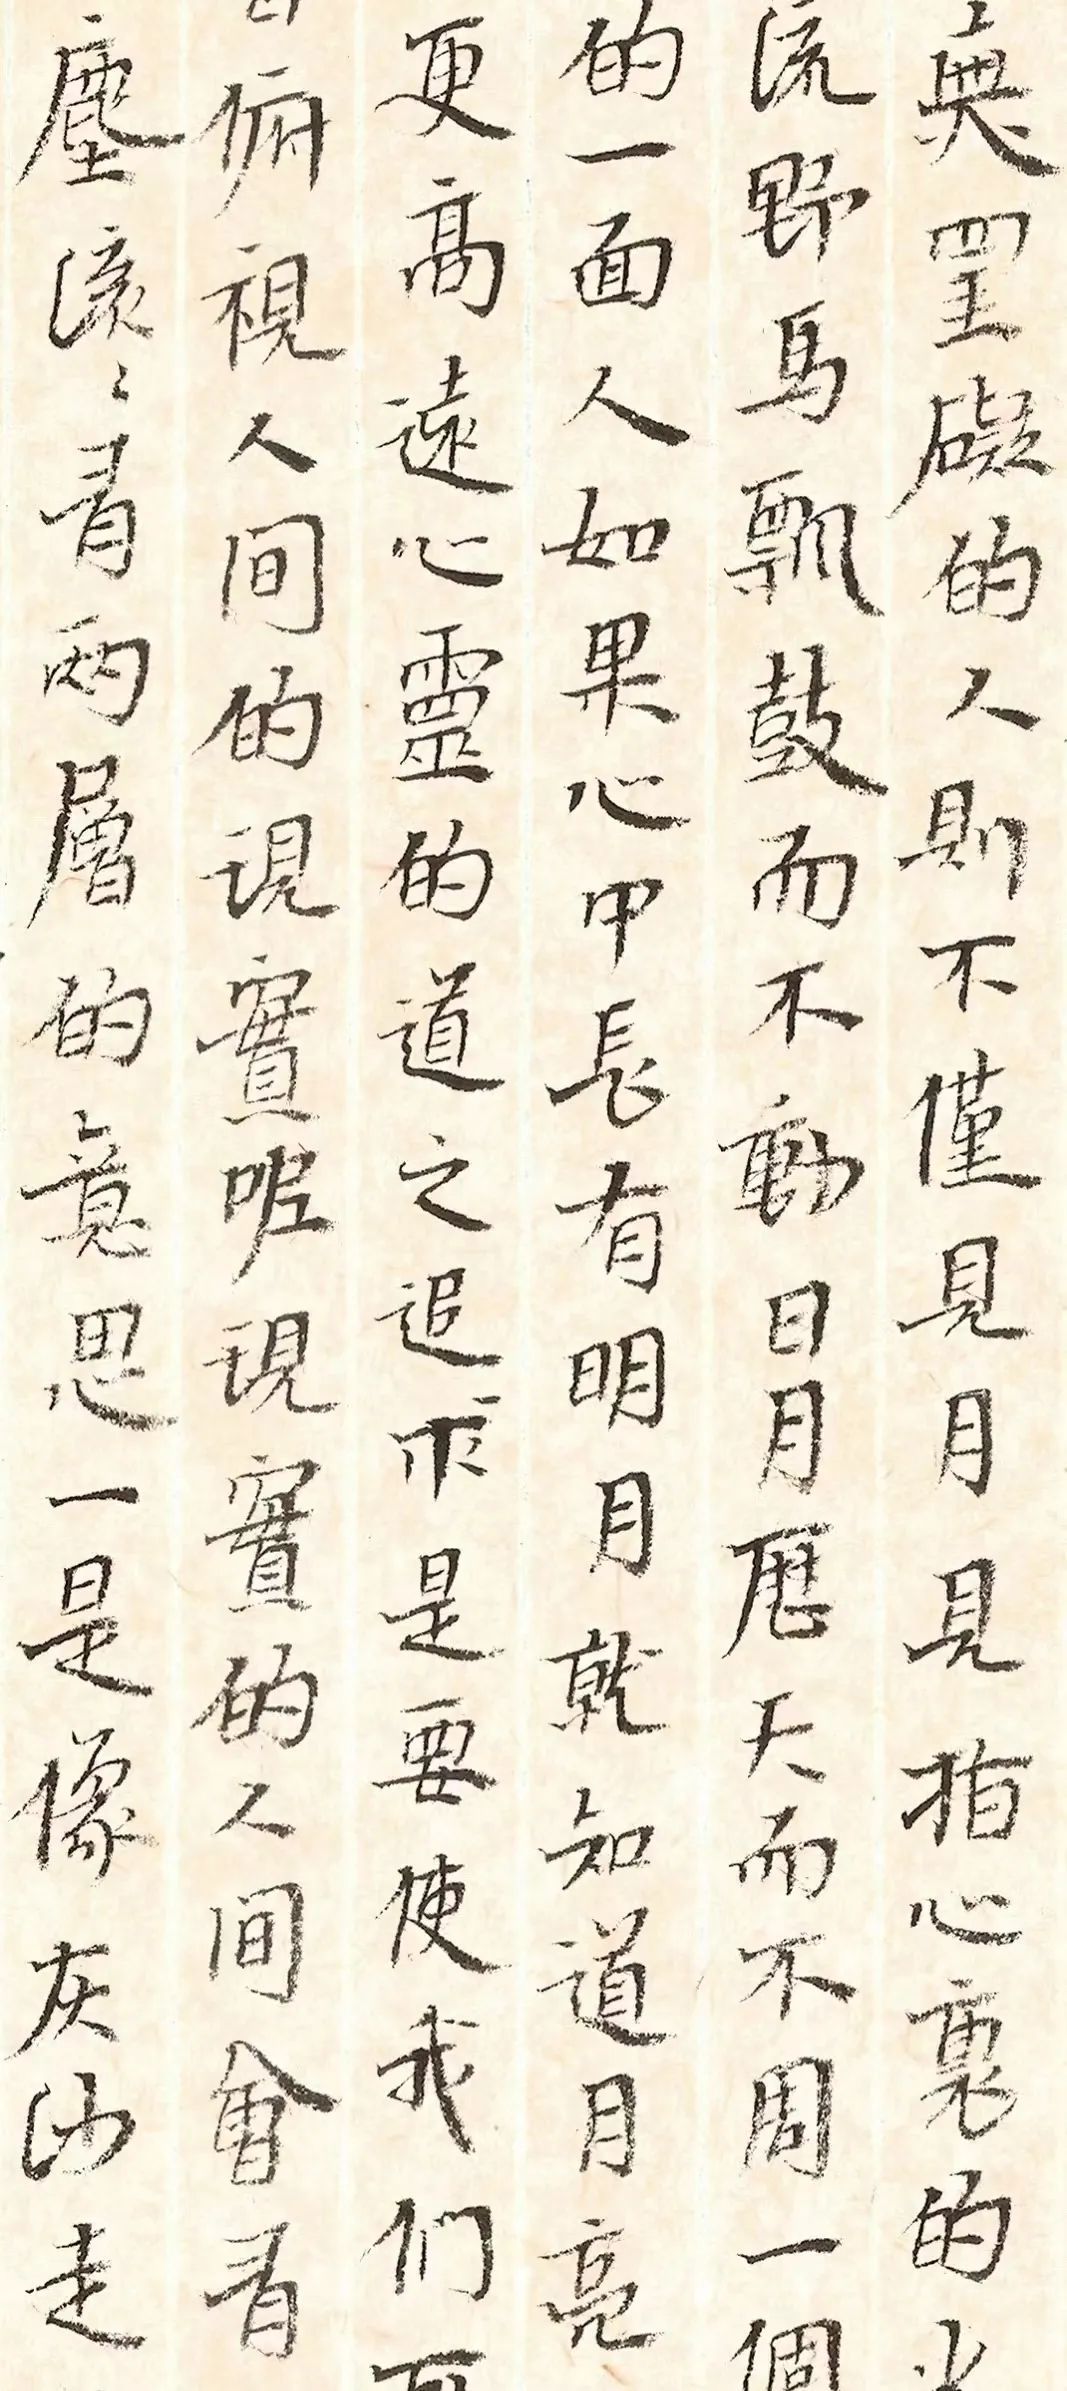 無罣礙的人則不僅見月見指心裏的光
流野馬飄鼓而不動日月歷天而不周一個
的一面人如果心甲長有明月就知道月亮
更高遠心靈的道之追求是要使我们
俯視人间的現實呢現實的人间會有
塵滾〻有兩層的意思一是像灰沙走